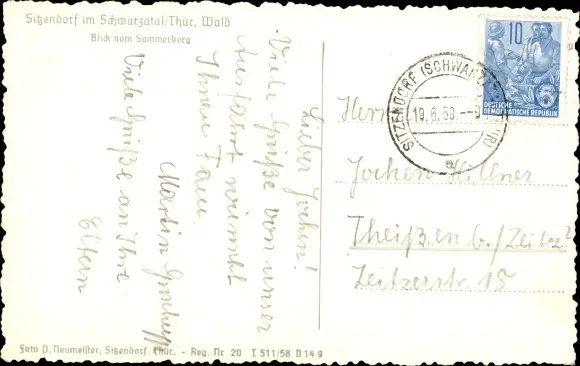 Sitzendorf im Schwarzatal/Thür. Wald
Blick vom Sommerberg
Lieber Jochen!
Viele Grüße von unser
Ausfahrt nimmt
Ihnen Fam.
Martin
Viele Grüße an Ihre
Eltern
10
DEUTSCHE
DEMOKRATISCHE REPUBLIK
5
SITZENDORF (SCHWARZATAL)
19.6.59.
a
Herrn
Jochen Hillner
Theißen b./Zeitz
Zeitzerstr. 15
Foto D. Neumeister, Sitzendorf/Thür. - Reg.-Nr 20 I 511/58 D 149